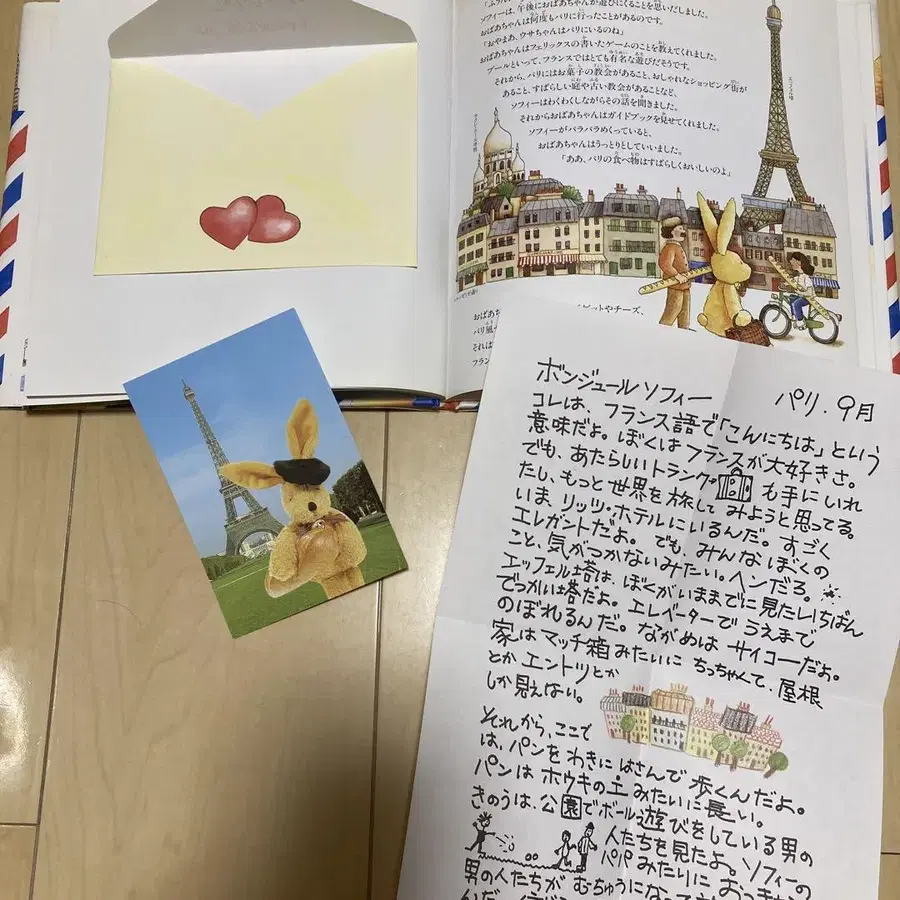 ソフィーは、午後におばあちゃんが遊びにくることを思いだしました。
おばあちゃんは何度もパリに行ったことがあるのです。
「おやまあ、ウサちゃんはパリにいるのね」
おばあちゃんはフェリックスの書いたゲームのことを教えてくれました。
ブールといって、フランスではとても有名な遊びだそうです。
それから、パリにはお菓子の教会があること、おしゃれなショッピング街が
あること、すばらしい庭や古い教会があることなど、
ソフィーはわくわくしながらその話を聞きました。
それからおばあちゃんはガイドブックを見せてくれました。
ソフィーがパラパラめくっていると、
おばあちゃんはうっとりとしていいました。
「ああ、パリの食べ物はすばらしくおいしいのよ」
エッフェル塔
おばあち
パリ風
それは
フラン
ットやチーズ、
ボンジュール ソフィー パリ．9月
コレは、フランス語で「こんにちは」という
意味だよ。ぼくはフランスが大好きさ。
でも、あたらしいトランク も手にいれ
たし、もっと世界を旅してみようと思ってる。
いま、リッツ・ホテルにいるんだ。すごく
エレガントだよ。でも、みんなぼくの
こと、気がつかないみたい。ヘンだろ。
エッフェル塔は、ぼくがいままでに見たいちばん
でっかい塔だよ。エレベーターでうえまで
のぼれるんだ。ながめはサイコーだよ。
家はマッチ箱みたいにちっちゃくて、屋根
とかエントツとか
しか見えない。
それから、ここで
は、パンをわきにはさんで歩くんだよ。
パンはホウキの土みたいに長い。
きのうは、公園でボール遊びをしている男の
人たちを見たよ。ソフィーの
パパみたいに
男の人たちが むちゅうになって